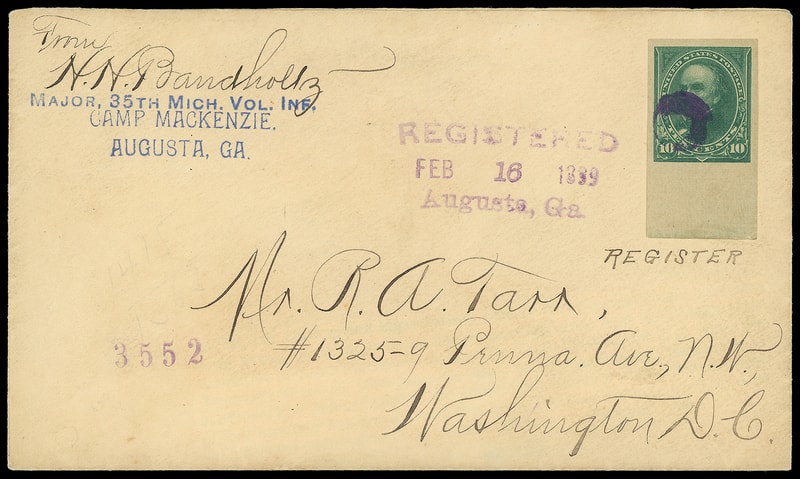 From
H. H. Bandholtz
MAJOR, 35TH MICH. VOL. INF,
CAMP MACKENZIE.
AUGUSTA, GA.
REGISTERED
FEB 16 1899
Augusta, Ga
UNITED STATES POSTAGE
10 CENTS 10
REGISTER
Mr. R. A. Tarr,
#1325-9 Penna. Ave., N.W.,
Washington D.C.
3552